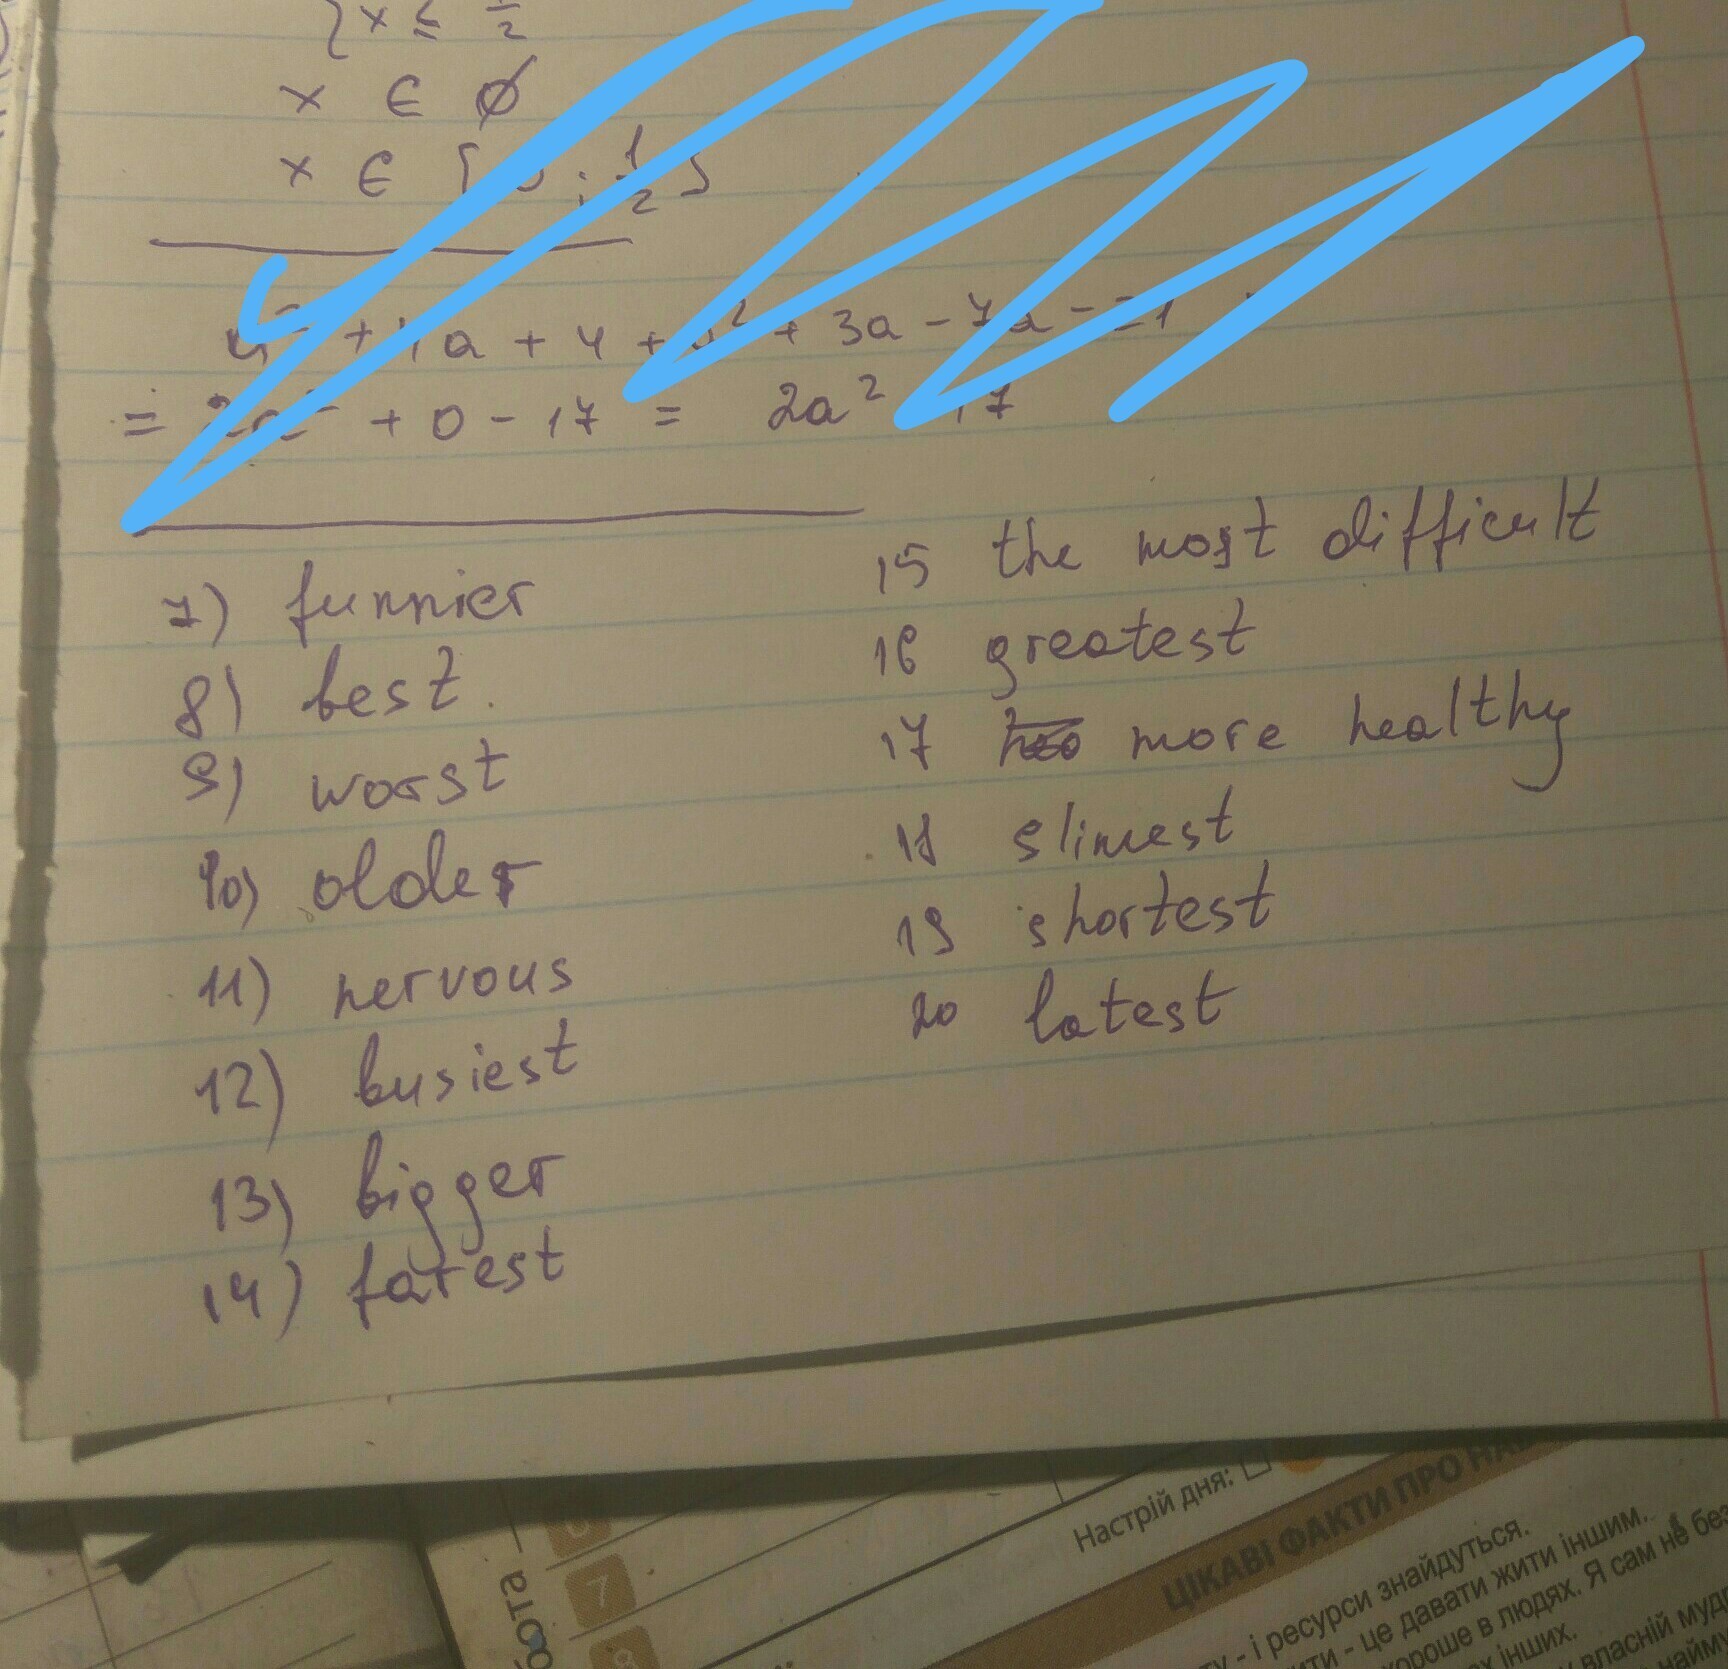 x ≤ 1/2
x ∈ ∅
x ∈ ; 1/2
+ a + 4 + ² + 3a - 7a - 21
= + 0 - 17 = 2a² 17
7) funnier
8) best.
9) worst
10) older
11) nervous
12) busiest
13) bigger
14) farest
15 the most difficult
16 greatest
17 more healthy
18 slimest
19 shortest
20 latest
Настрій дня:
ЦІКАВІ ФАКТИ ПРО
- і ресурси знайдуться.
- це давати жити іншим.
хороше в людях. Я сам не без
інших.
власній
7
8